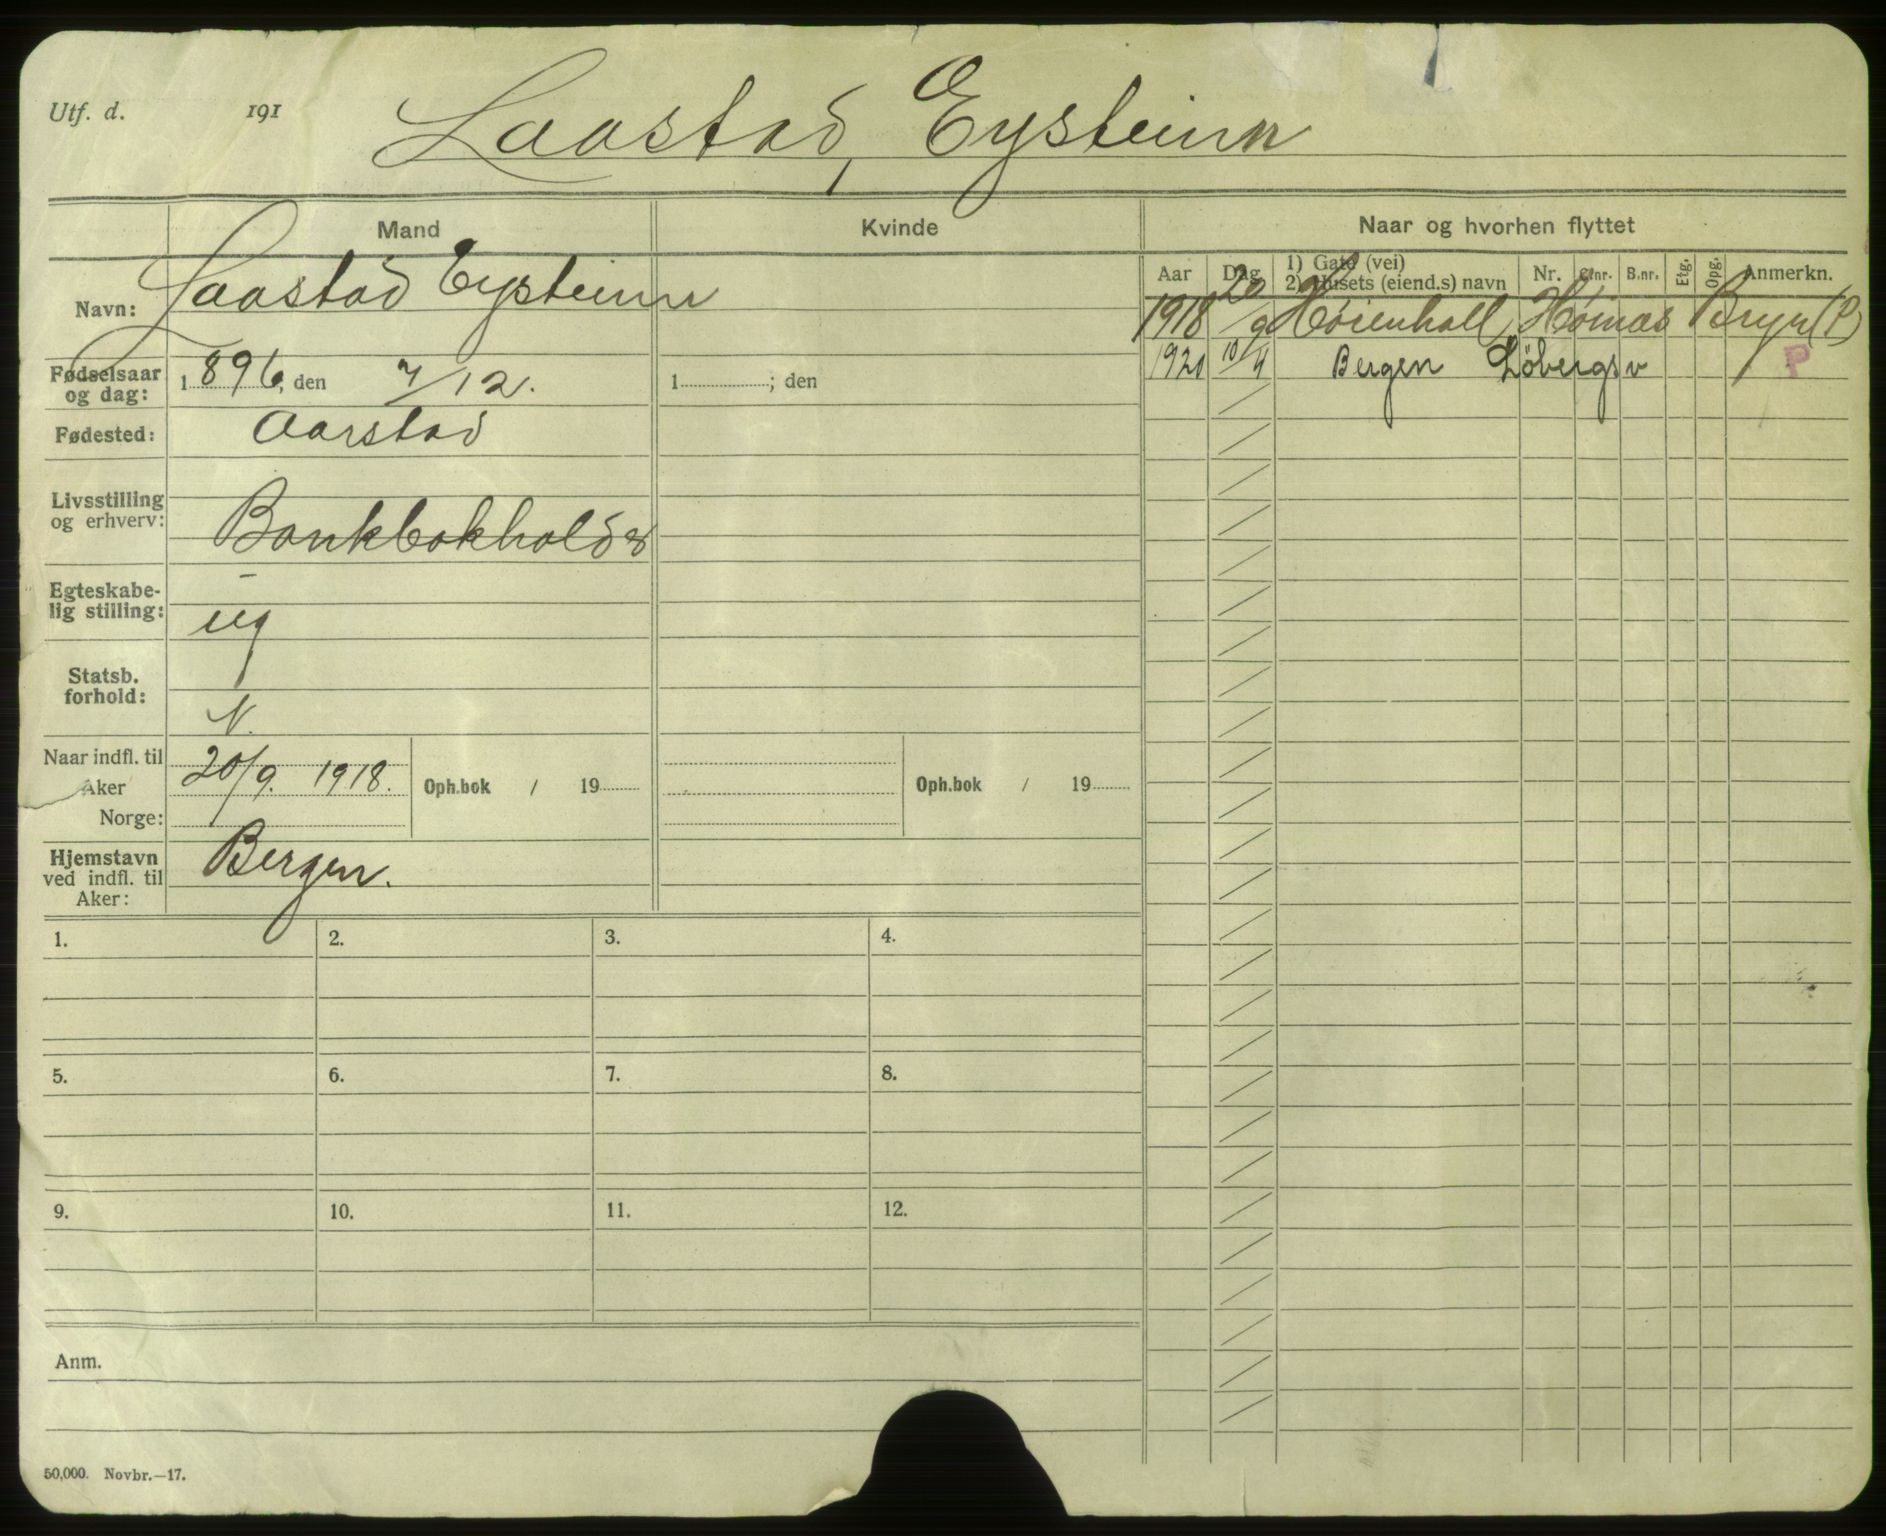 Utf. d. 191
Laastad, Eysteinn
Mand Kvinde Naar og hvorhen flyttet
Aar Dag 1) Gate (vei) 2) Husets (eiend.s) navn Nr. G.nr. B.nr. Etg. Opg. Anmerkn.
Navn: Laastad Eysteinn
Fødselsaar og dag: 1896, den 7/12. 1 ; den
Fødested: Aarstad
Livsstilling og erhverv: Bankbokholder
Egteskabe-
lig stilling: ug
Statsb.
forhold: N.
Naar indfl. til 20/9. 1918.
Aker Oph.bok / 19 Oph.bok / 19
Norge:
Hjemstavn
ved indfl. til
Aker: Bergen.
1918 20/9 Høienhall, Bryn (P)
1921 10/4 Bergen P
1. 2. 3. 4.
5. 6. 7. 8.
9. 10. 11. 12.
Anm.
50,000. Novbr.—17.